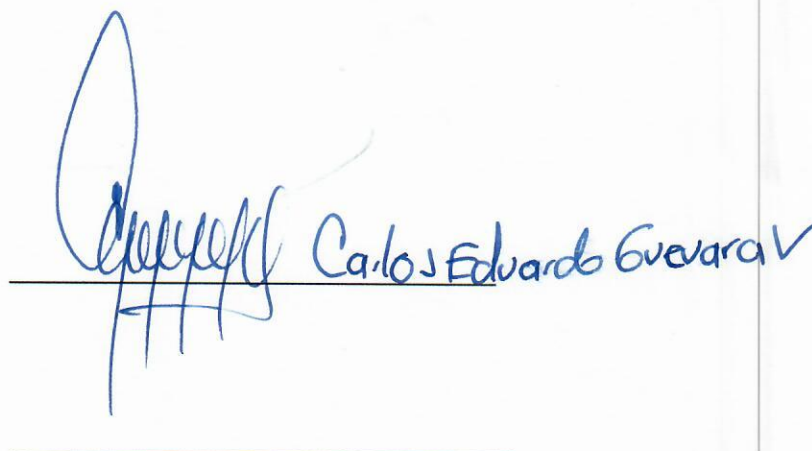 Carlos Eduardo Guevara V